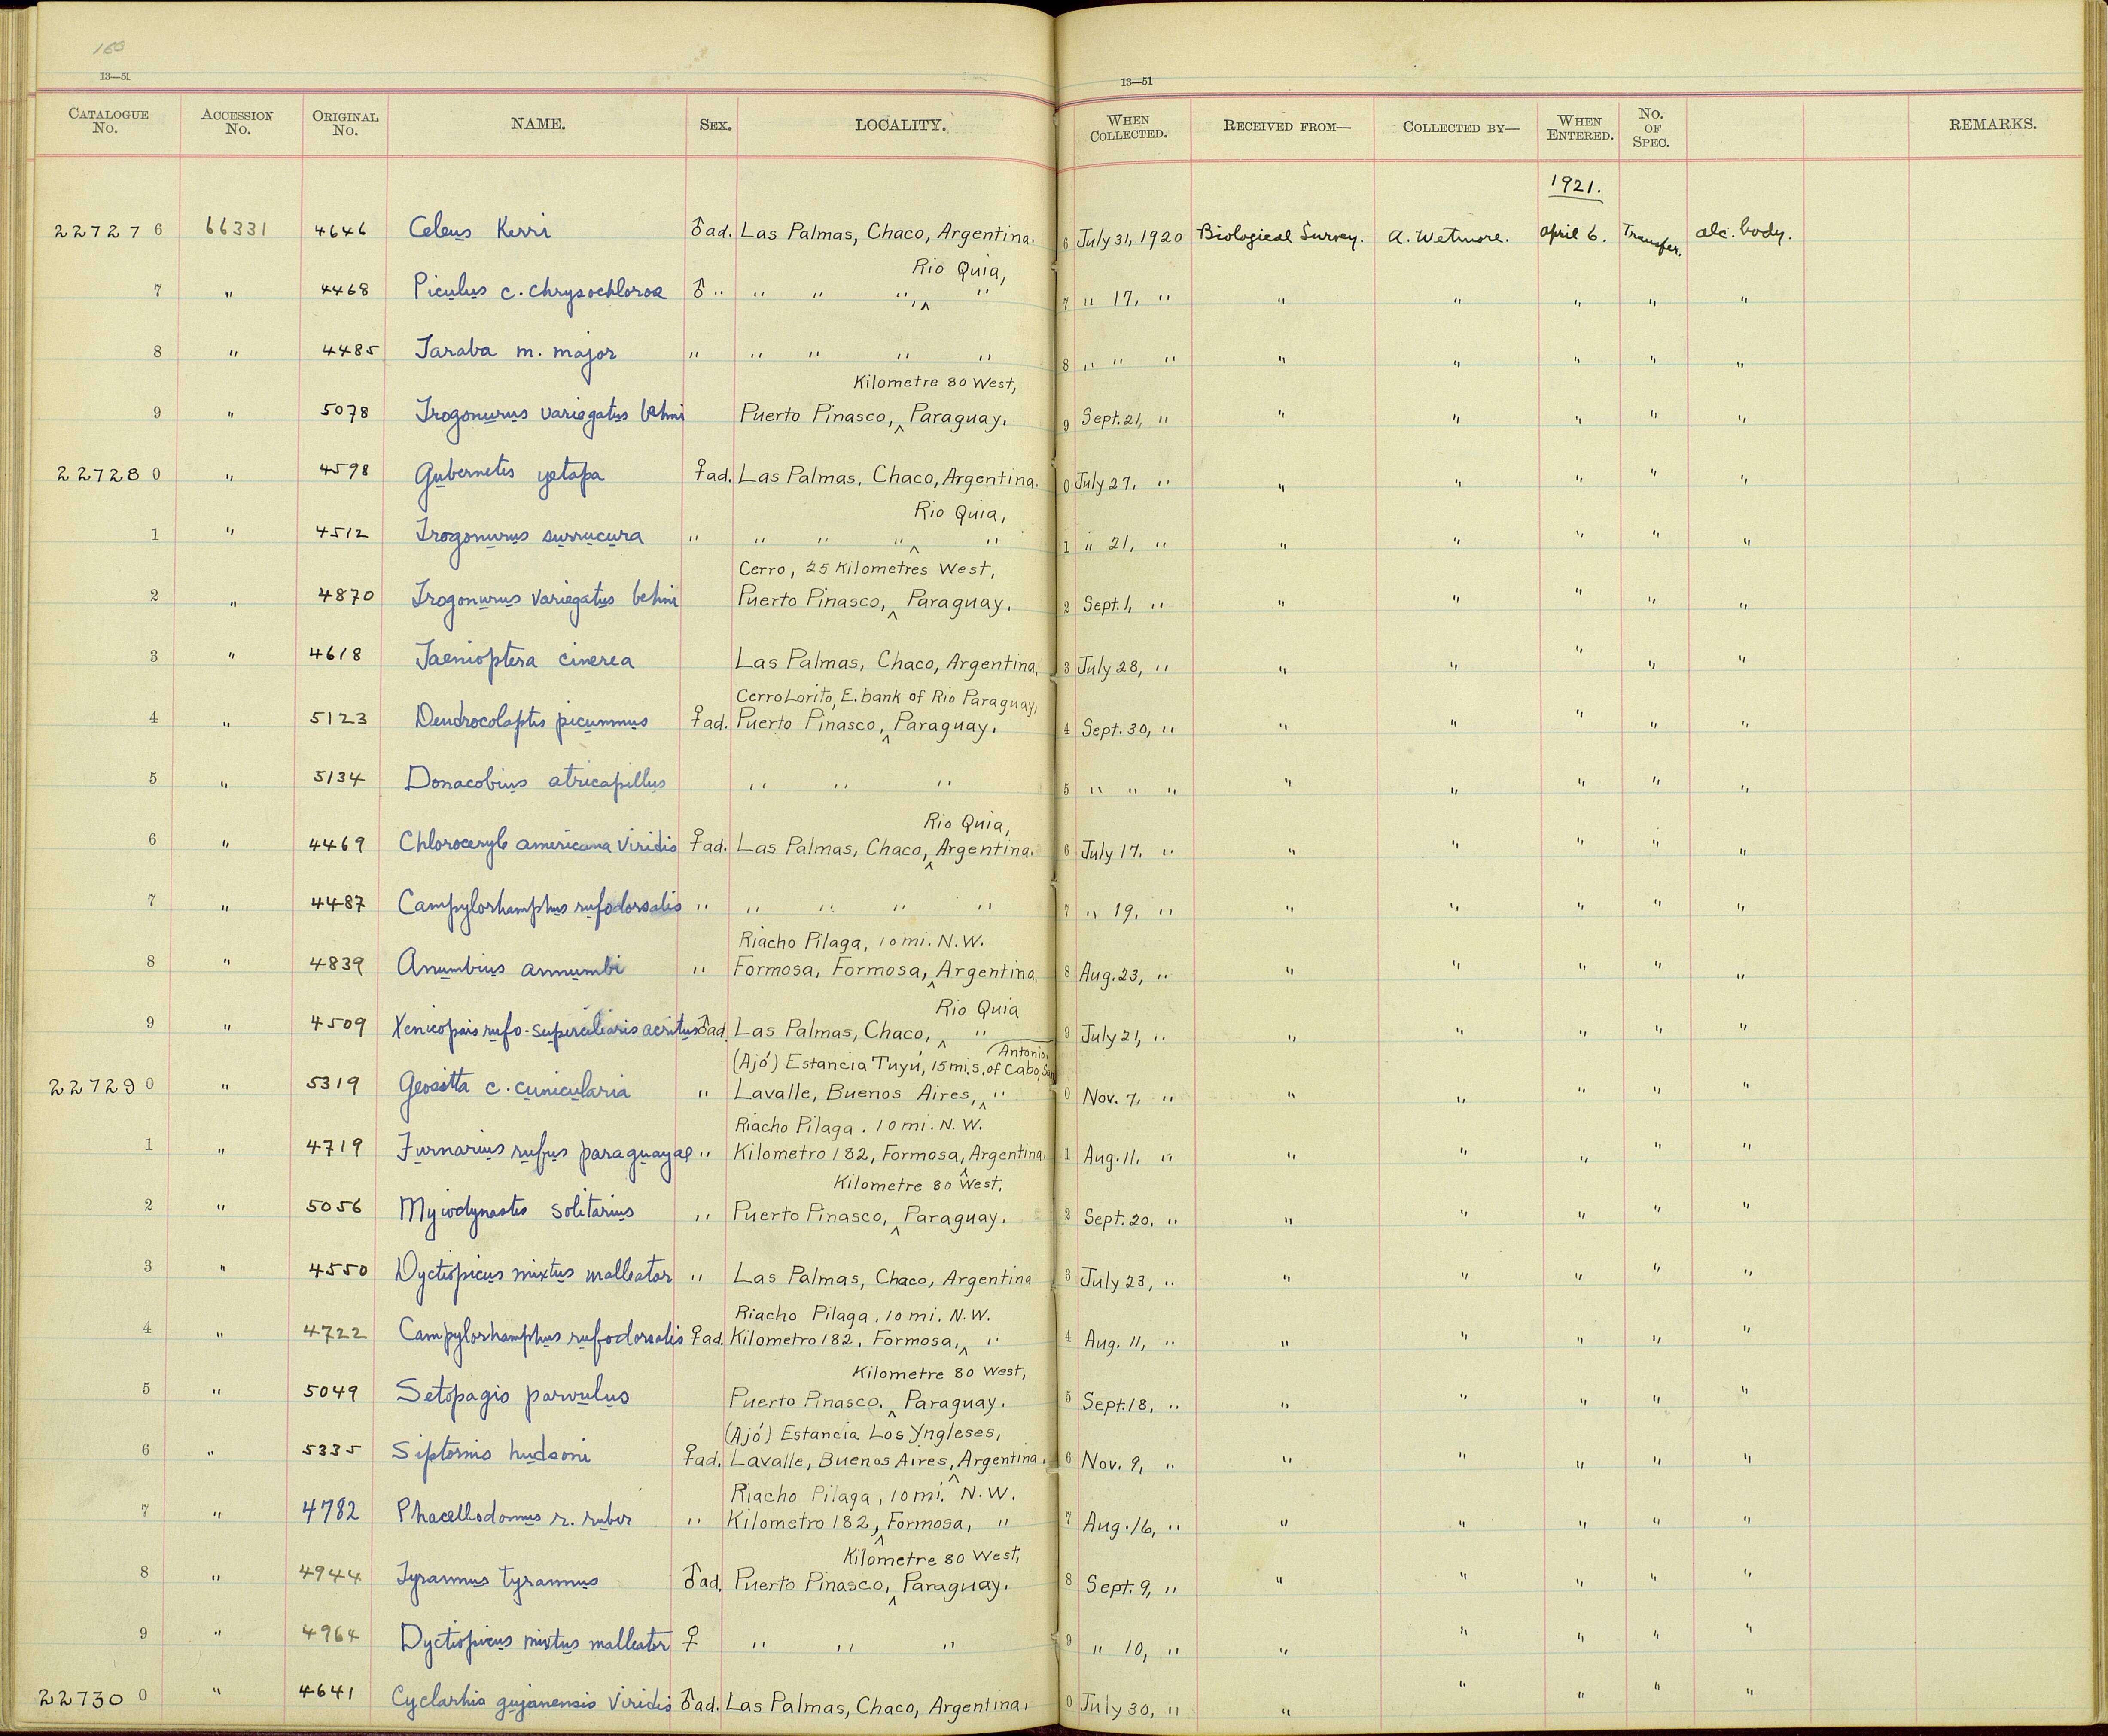 160
13—51
13—51
CATALOGUE No. ACCESSION No. ORIGINAL No. NAME. SEX. LOCALITY. WHEN COLLECTED. RECEIVED FROM— COLLECTED BY— WHEN ENTERED. No. OF SPEC. REMARKS.
1921.
227276 66331 4646 Celeus Kerri ♂ad. Las Palmas, Chaco, Argentina. 6 July 31, 1920 Biological Survey. A. Wetmore. April 6. Transfer. alc. body.
Rio Quia,
7 " 4468 Piculus c. chrysochloros ♂ " " " " ‸ " 7 " 17, " " " " " "
8 " 4485 Taraba m. major " " " " " 8 " " " " " " " "
Kilometre 80 West,
9 " 5078 Trogonurus variegatus behni Puerto Pinasco, ‸ Paraguay. 9 Sept. 21, " " " " " "
227280 " 4598 Gubernetes yetapa ♀ad. Las Palmas, Chaco, Argentina. 0 July 27, " " " " " "
Rio Quia,
1 " 4512 Trogonurus surrucura " " " " ‸ " 1 " 21, " " " " " "
Cerro, 25 Kilometres West,
2 " 4870 Trogonurus variegatus behni Puerto Pinasco, ‸ Paraguay. 2 Sept. 1, " " " " " "
3 " 4618 Taenioptera cinerea Las Palmas, Chaco, Argentina, 3 July 28, " " " " " "
Cerro Lorito, E. bank of Rio Paraguay,
4 " 5123 Dendrocolaptes picumnus ♀ad. Puerto Pinasco, ‸ Paraguay. 4 Sept. 30, " " " " " "
5 " 5134 Donacobius atricapillus " " " 5 " " " " " " " "
Rio Quia,
6 " 4469 Chloroceryle americana viridis ♀ad. Las Palmas, Chaco, ‸ Argentina. 6 July 17, " " " " " "
7 " 4487 Campylorhamphus rufodorsalis " " " " " 7 " 19, " " " " " "
Riacho Pilaga, 10 mi. N.W.
8 " 4839 Anumbius annumbi " Formosa, Formosa, ‸ Argentina, 8 Aug. 23, " " " " " "
Rio Quia
9 " 4509 Xenicopsis rufo-superciliaris acritus ♂ad. Las Palmas, Chaco, ‸ " 9 July 21, " " " " " "
(Ajó) Estancia Tuyú, 15 mi. s. of Cabo, San Antonio,
227290 " 5319 Geositta c. cunicularia " Lavalle, Buenos Aires, ‸ " 0 Nov. 7, " " " " " "
Riacho Pilaga. 10 mi. N.W.
1 " 4719 Furnarius rufus paraguayae " Kilometro 182, Formosa, ‸ Argentina. 1 Aug. 11, " " " " " "
Kilometre 80 West.
2 " 5056 Myiodynastes solitarius " Puerto Pinasco, ‸ Paraguay. 2 Sept. 20, " " " " " "
3 " 4550 Dyctiopicus mixtus malleator " Las Palmas, Chaco, Argentina 3 July 23, " " " " " "
Riacho Pilaga, 10 mi. N.W.
4 " 4722 Campylorhamphus rufodorsalis ♀ad. Kilometro 182, Formosa, ‸ " 4 Aug. 11, " " " " " "
Kilometre 80 West,
5 " 5049 Setopagis parvulus Puerto Pinasco. ‸ Paraguay. 5 Sept. 18, " " " " " "
(Ajó) Estancia Los Yngleses,
6 " 5335 Siptornis hudsoni ♀ad. Lavalle, Buenos Aires, ‸ Argentina. 6 Nov. 9, " " " " " "
Riacho Pilaga, 10 mi. N.W.
7 " 4782 Phacellodomus r. ruber " Kilometro 182, ‸ Formosa, " 7 Aug. 16, " " " " " "
Kilometre 80 West,
8 " 4944 Tyrannus tyrannus ♂ad. Puerto Pinasco, ‸ Paraguay. 8 Sept. 9, " " " " " "
9 " 4964 Dyctiopicus mixtus malleator ♀ " " " 9 " 10, " " " " " "
227300 " 4641 Cyclarhis gujanensis viridis ♂ad. Las Palmas, Chaco, Argentina. 0 July 30, " " " " " "